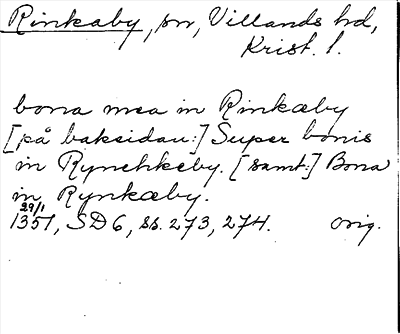 Rinkaby, sn, Villands hd,
Krist. l.
bona mea in Rinkæby
[på baksidan:] Super bonis
in Rynehkeby. [samt:] Bona
in Rynkæby.
29/1
1351, SD 6, ss. 273, 274. orig.